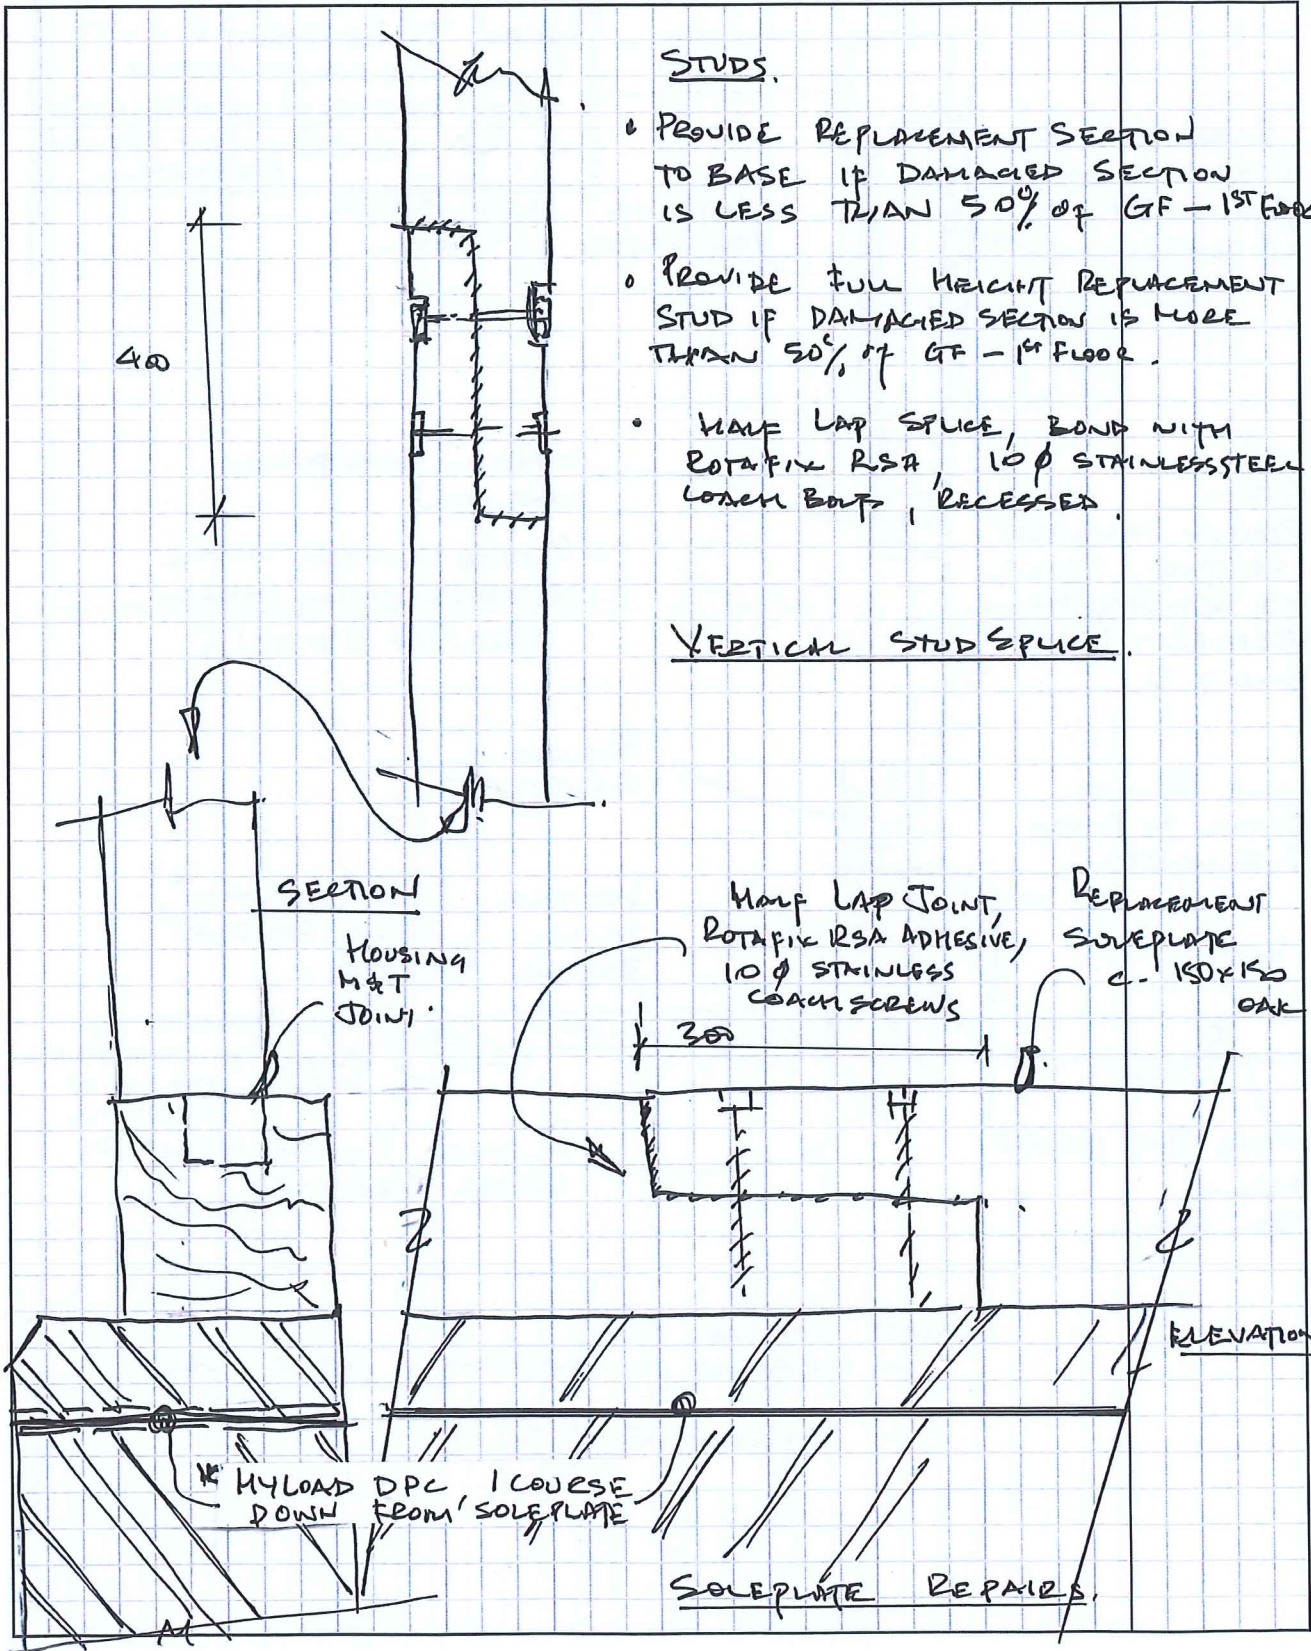 STUDS.
• PROVIDE REPLACEMENT SECTION
TO BASE IF DAMAGED SECTION
IS LESS THAN 50% of GF - 1ST FLOOR
• PROVIDE FULL HEIGHT REPLACEMENT
STUD IF DAMAGED SECTION IS MORE
THAN 50% of GF - 1st FLOOR.
400
• HALF LAP SPLICE, BOND WITH
ROTAFIX RSA, 10 ϕ STAINLESS STEEL
COACH BOLTS, RECESSED.
VERTICAL STUD SPLICE.
SECTION
HOUSING
M&T
JOINT.
HALF LAP JOINT,
ROTAFIX RSA ADHESIVE,
10 ϕ STAINLESS
COACH SCREWS
REPLACEMENT
SOLEPLATE
c. 150x150
OAK
300
ELEVATION
* HYLOAD DPC, 1 COURSE
DOWN FROM SOLEPLATE
SOLEPLATE REPAIRS.